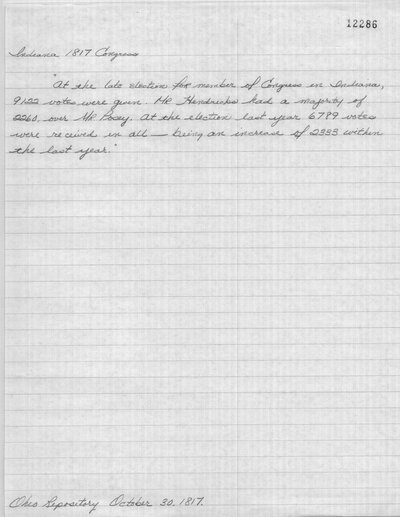 12286
Indiana 1817 Congress
"At the late election for member of Congress in Indiana,
9122 votes were given. Mr Hendricks had a majority of
2260, over Mr Posey. At the election last year 6789 votes
were received in all — being an increase of 2333 within
the last year."
Ohio Repository October 30, 1817.